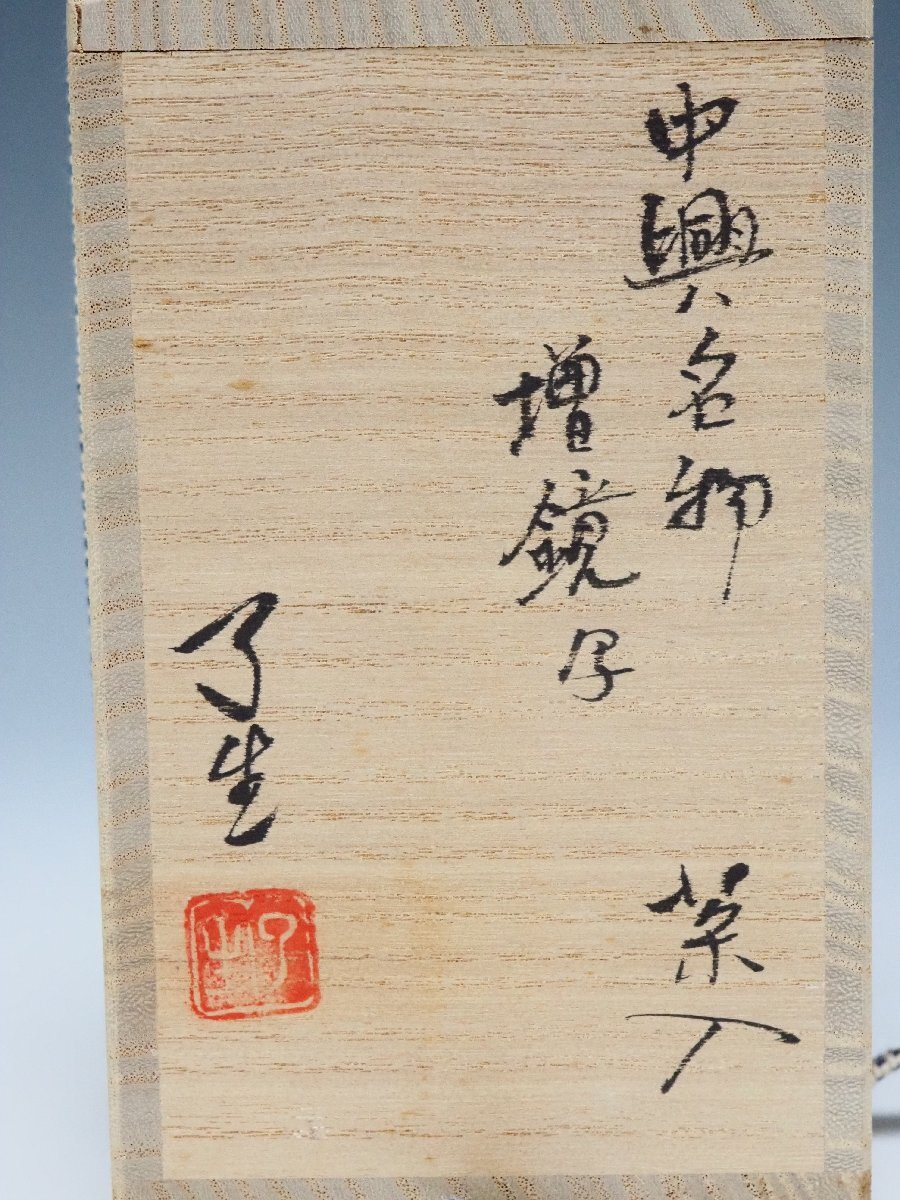 中興名物
増鏡 写
茶入
了生